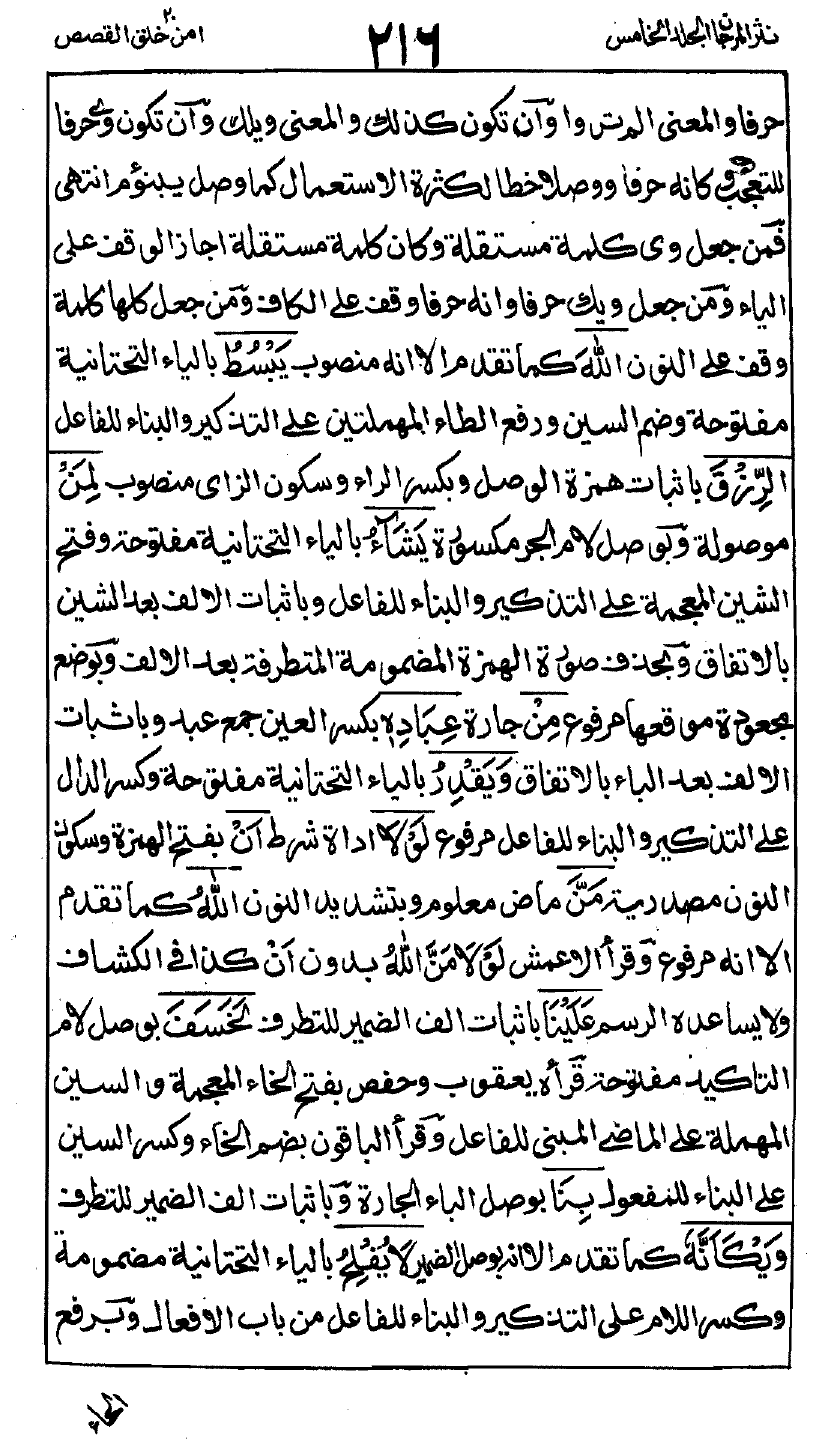 نثر المرجان الجلد الخامس ٢١٦ امن خلق ٢٠ القصص
حرفا والمعنى الم تروا وآن تكون كذلك والمعنى ويلك وآن تكون وى حرفا
للتعجب وكانه حرفا ووصلا خطا لكثرة الاستعمال كما وصل يبنؤم انتهى
فمن جعل وى كلمة مستقلة وكان كلمة مستقلة اجاز الوقف على
الياء ومن جعل ويك حرفا وانه حرفا وقف على الكاف ومن جعل كلها كلمة
وقف على النون اللهَ كما تقدم الا انه منصوب يَبْسُطُ بالياء التحتانية
مفتوحة وضم السين ورفع الطاء المهملتين على التذكير والبناء للفاعل
الرِّزْقَ باثبات همزة الوصل وبكسر الراء وسكون الزاى منصوب لِمَنْ
موصولة وبوصل لام الجر مكسورة يَشَآءُ بالياء التحتانية مفتوحة وفتح
الشين المعجمة على التذكير والبناء للفاعل وباثبات الالف بعد الشين
بالاتفاق وبحذف صورة الهمزة المضمومة المتطرفة بعد الالف وبوضع
مجعودة موقعها مرفوع مِنْ جارة عِبَادِهٖ بكسر العين جمع عبد وباثبات
الالف بعد الباء بالاتفاق وَيَقْدِرُ بالياء التحتانية مفتوحة وكسر الدال
على التذكير والبناء للفاعل مرفوع لَوْلَا اداة شرط اَنْ بفتح الهمزة وسكون
النون مصدرية مَنَّ ماض معلوم وبتشديد النون اللهُ كما تقدم
الا انه مرفوع وقرأ الاعمش لَوْلَا مَنَّ اللهُ بدون اَنْ كذا فى الكشاف
ولا يساعده الرسم عَلَيْنَا باثبات الف الضمير للتطرف لَخَسَفَ بوصل لام
التاكيد مفتوحة قرأه يعقوب وحفص بفتح الخاء المعجمة والسين
المهملة على الماضى المبنى للفاعل وقرأ الباقون بضم الخاء وكسر السين
على البناء للمفعول بِنَا بوصل الباء الجارة وباثبات الف الضمير للتطرف
وَيْكَاَنَّهٗ كما تقدم الا انه بوصل الضمير لَا يُفْلِحُ بالياء التحتانية مضمومة
وكسر اللام على التذكير والبناء للفاعل من باب الافعال وبرفع
الحاء